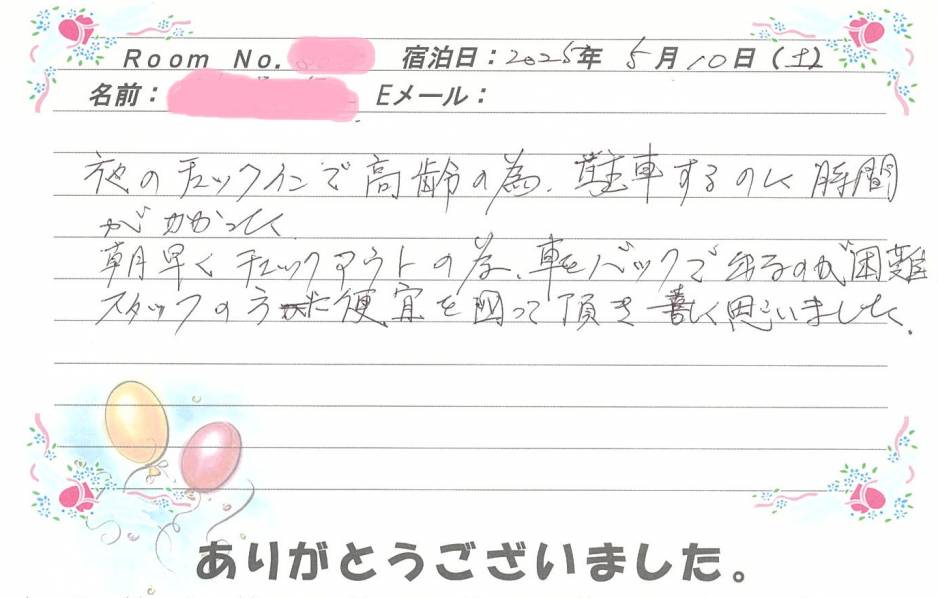 Room No. 宿泊日:2025年 5月10日(土)
名前: Eメール:
夜のチェックインで高齢の為、駐車するのに時間
がかかって
朝早くチェックアウトの為、車をバックで出るのが困難
スタッフの方に便宜を図って頂き嬉しく思いました。
ありがとうございました。